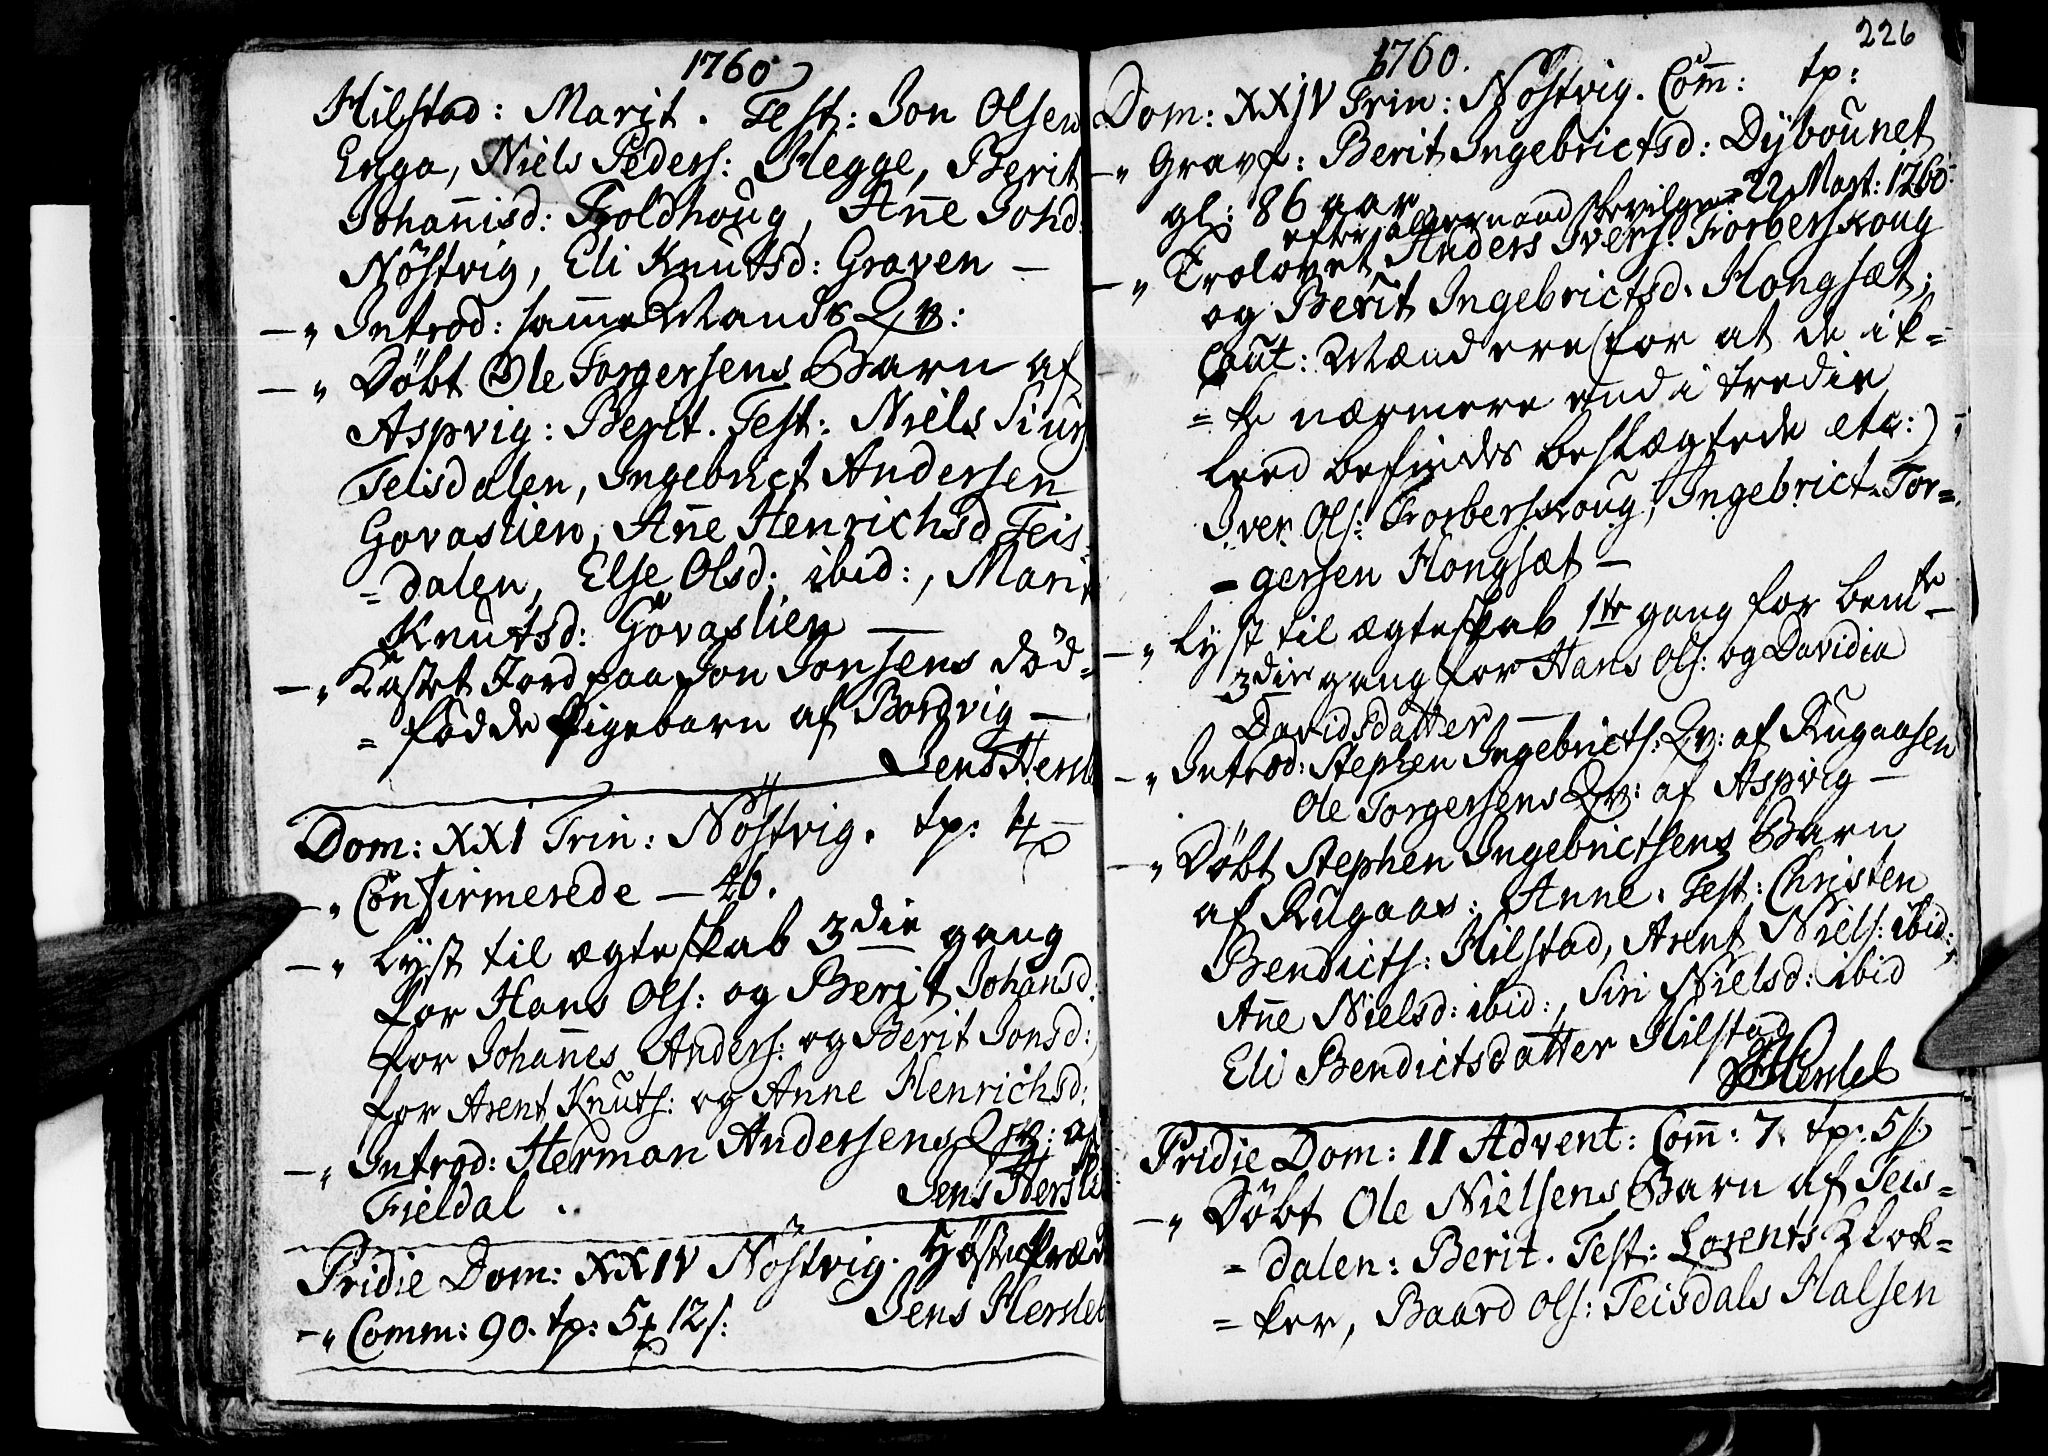 1760
Hilstad: Marit. Test: Jon Olsen
Enga, Niels Peders: Hegge, Berit
Johannisd: Troldhoug, Anne Johd:
Nöstvig, Eli Knutsd: Graven —
— " Introd: samme Mands Qv:
— " Döbt Ole Torgersens Barn af
Aspvig: Berit. Test: Niels Siur
Teisdalen, Ingebrict Andersen
Govaslien, Anne Henrichsd Teis-
= dalen, Else Olsd: ibid:, Marit
Knutsd: Govaslien —
— " Kastet Jord paa Jon Jonsens död-
= födde Pigebarn af Bordvig —
Jens Hersleb
Dom: XXI Trin: Nöstvig. tp: 4
— " Confirmerede — 46.
— " Lyst til ægteskab 3die gang
for Hans Ols: og Berit Johansd:
for Johannes Anders: og Berit Jonsd:
for Arent Knuts: og Anne Henrichsd:
— " Introd: Herman Andersens Qv: af
Fieldal. Jens Hersleb
Pridie Dom: XXIV Nöstvig. Höste Præd
— " Comm: 90. tp: 5 12 s:
Jens Hersleb
226
1760.
Dom: XXIV Trin: Nöstvig. Com: tp:
— " Gravf: Berit Ingebrictsd: Dybounet
gl: 86 aar
efter bevilgn: 22 Mart: 1760:
— " Trolovet Anders Ivers: Forberskoug
og Berit Ingebrictsd. Hongsæt;
Caut: Mændere (for at de ik-
= ke nærmere end i tredie
Leed befindes beslægtede etc:)
Iver Ols: Forberskoug, Ingebrict Tor-
= gersen Hongsæt —
— " Lyst til ægteskab 1ste gang for bemte
3die gang for Hans Ols: og Davidia
Davidsdatter —
— " Introd: Stephen Ingebricts: Qv: af Rugaasen
Ole Torgersens Qv: af Aspvig —
— " Döbt Stephen Ingebrictsens Barn
af Rugaas: Anne. Test: Christen
Bendicts: Hilstad, Arent Niels: ibid:,
Anne Nielsd: ibid:, Siri Nielsd: ibid
Eli Bendictsdatter Hilstad
JHersleb
Pridie Dom: II Advent: Com: 7. tp: 5 s:
— " Döbt Ole Nielsens Barn af Teis-
= dalen: Berit. Test: Lorents Klok-
= ker, Baard Ols: Teisdals Halsen